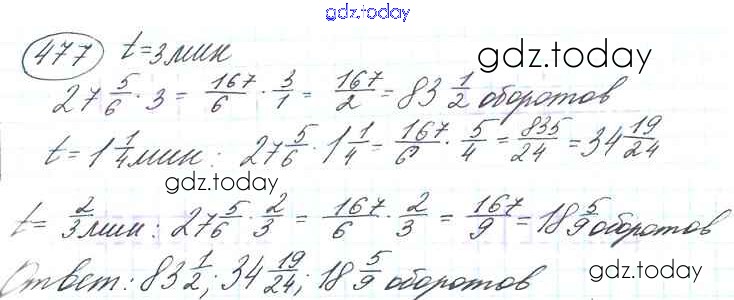 gdz.today
477 t=3мин
gdz.today
27 5/6 · 3 = 167/6 · 3/1 = 167/2 = 83 1/2 оборотов
gdz.today
t=1 1/4 мин: 27 5/6 · 1 1/4 = 167/6 · 5/4 = 835/24 = 34 19/24
gdz.today
t= 2/3 мин: 27 5/6 · 2/3 = 167/6 · 2/3 = 167/9 = 18 5/9 оборотов
Ответ: 83 1/2; 34 19/24; 18 5/9 оборотов
gdz.today